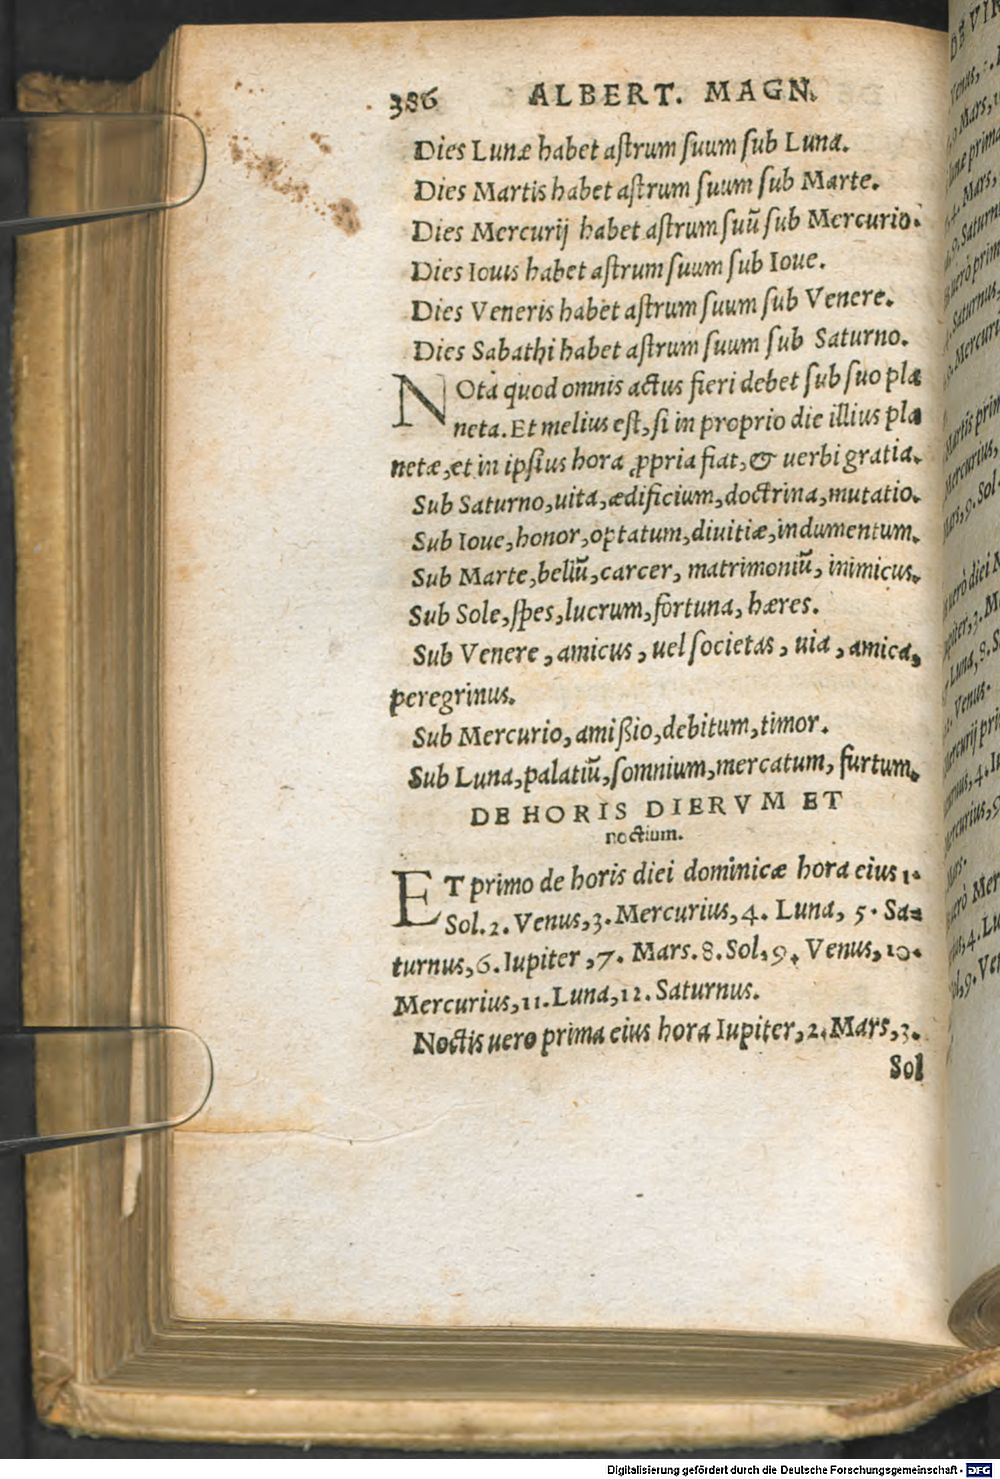 386 ALBERT. MAGN.
Dies Lunæ habet aſtrum ſuum ſub Luna.
Dies Martis habet aſtrum ſuum ſub Marte.
Dies Mercurij habet aſtrum ſuũ ſub Mercurio.
Dies Iouis habet aſtrum ſuum ſub Ioue.
Dies Veneris habet aſtrum ſuum ſub Venere.
Dies Sabathi habet aſtrum ſuum ſub Saturno.
NOta quod omnis actus fieri debet ſub ſuo pla
neta. Et melius eſt, ſi in proprio die illius pla
netæ, et in ipſius hora ꝓpria fiat, & uerbi gratia.
Sub Saturno, uita, ædificium, doctrina, mutatio.
Sub Ioue, honor, optatum, diuitiæ, indumentum.
Sub Marte, bellũ, carcer, matrimoniũ, inimicus.
Sub Sole, ſpes, lucrum, fortuna, hæres.
Sub Venere, amicus, uel ſocietas, uia, amica,
peregrinus.
Sub Mercurio, amißio, debitum, timor.
Sub Luna, palatiũ, ſomnium, mercatum, furtum.
DE HORIS DIERVM ET
noctium.
ET primo de horis diei dominicæ hora eius 1.
Sol. 2. Venus, 3. Mercurius, 4. Luna, 5. Sa=
turnus, 6. Iupiter, 7. Mars. 8. Sol, 9. Venus, 10.
Mercurius, 11. Luna, 12. Saturnus.
Noctis uero prima eius hora Iupiter, 2. Mars, 3.
Sol
Digitalisierung gefördert durch die Deutsche Forschungsgemeinschaft - DFG